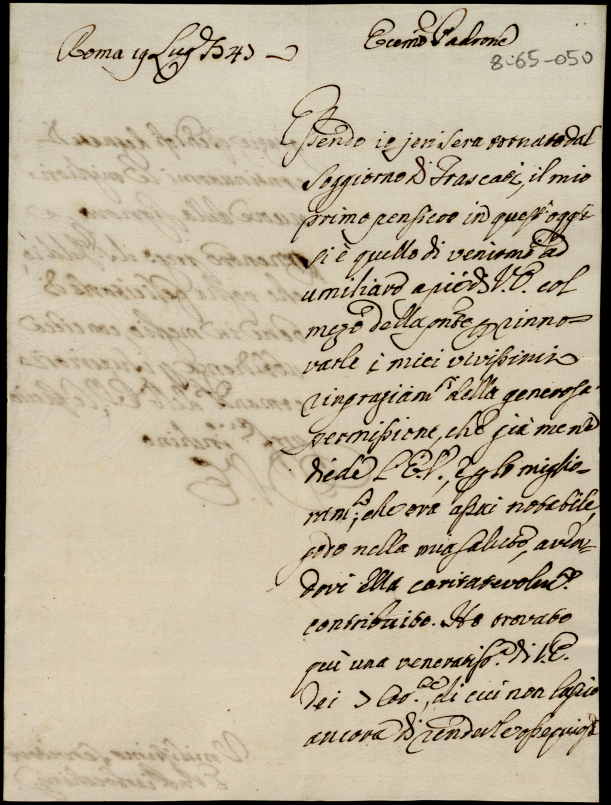 Roma 19 Lug.o 1743
Eccmo Padrone
8-65-050
Essendo io jeri sera tornato dal
Soggiorno di Frascati, il mio
primo pensiero in quest'oggi
si è quello di venirmi ad
umiliare a piè di V.E. col
mezo della pnte p rinno=
varle i miei vivissimi
ringraziam.ti della generosa
permissione, che già me ne
diede l'E.V., e p lo miglio=
ram.to, che ora assai notabile,
godo nella mia salute, aven=
dovi ella caritatevolm.e
contribuito. Ho trovato
quì una veneratiss.a di V.E.
dei > Cor.e, di cui non lascio
ancora di renderle ossequiose